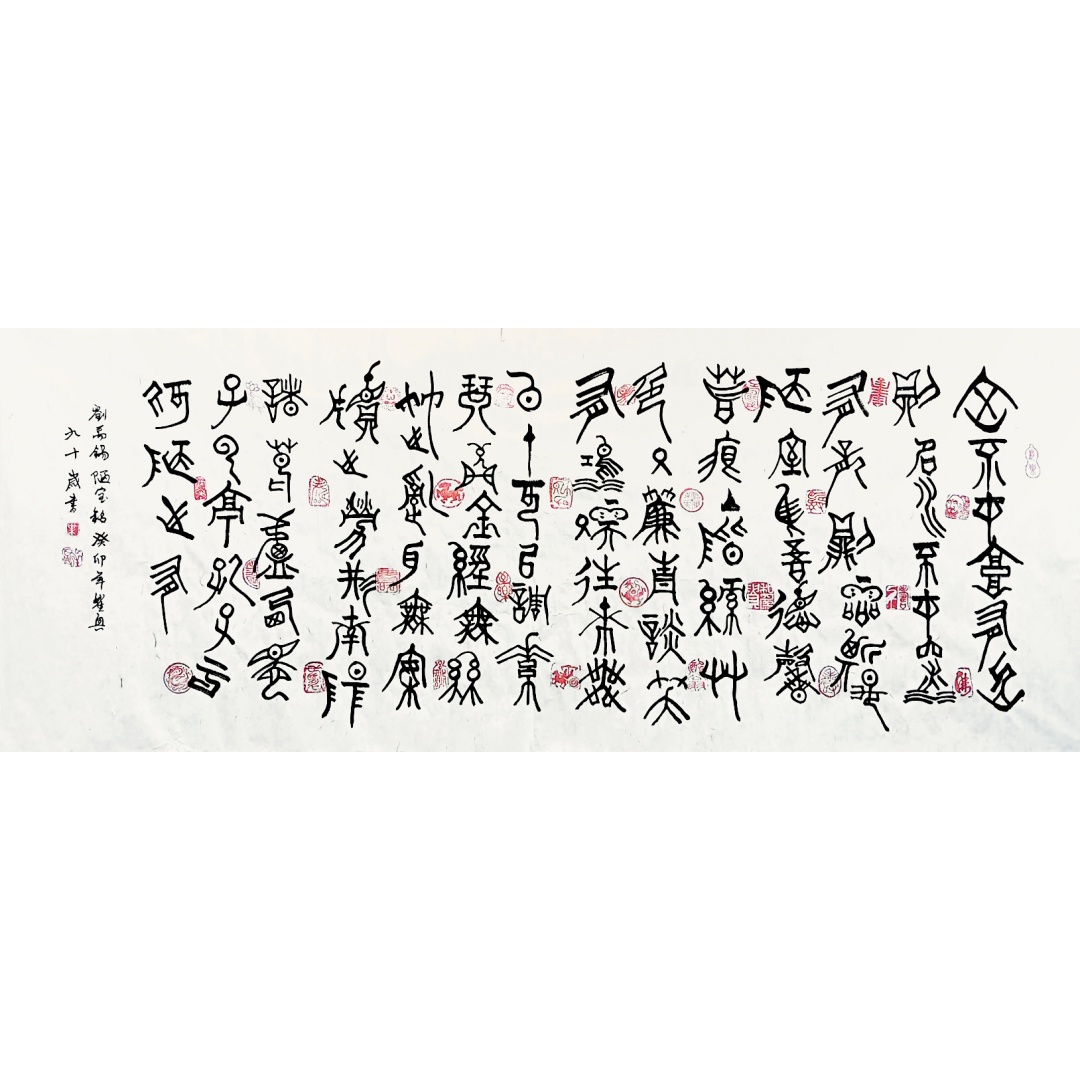 山不在高有仙
則名水不在深
有龍則靈斯是
陋室惟吾德馨
苔痕上階綠草
色入簾青談笑
有鴻儒往來無
白丁可以調素
琴閱金經無絲
竹之亂耳無案
牘之勞形南陽
諸葛廬西蜀
子雲亭孔子云
何陋之有
劉禹錫陋室銘癸卯年
九十歲書